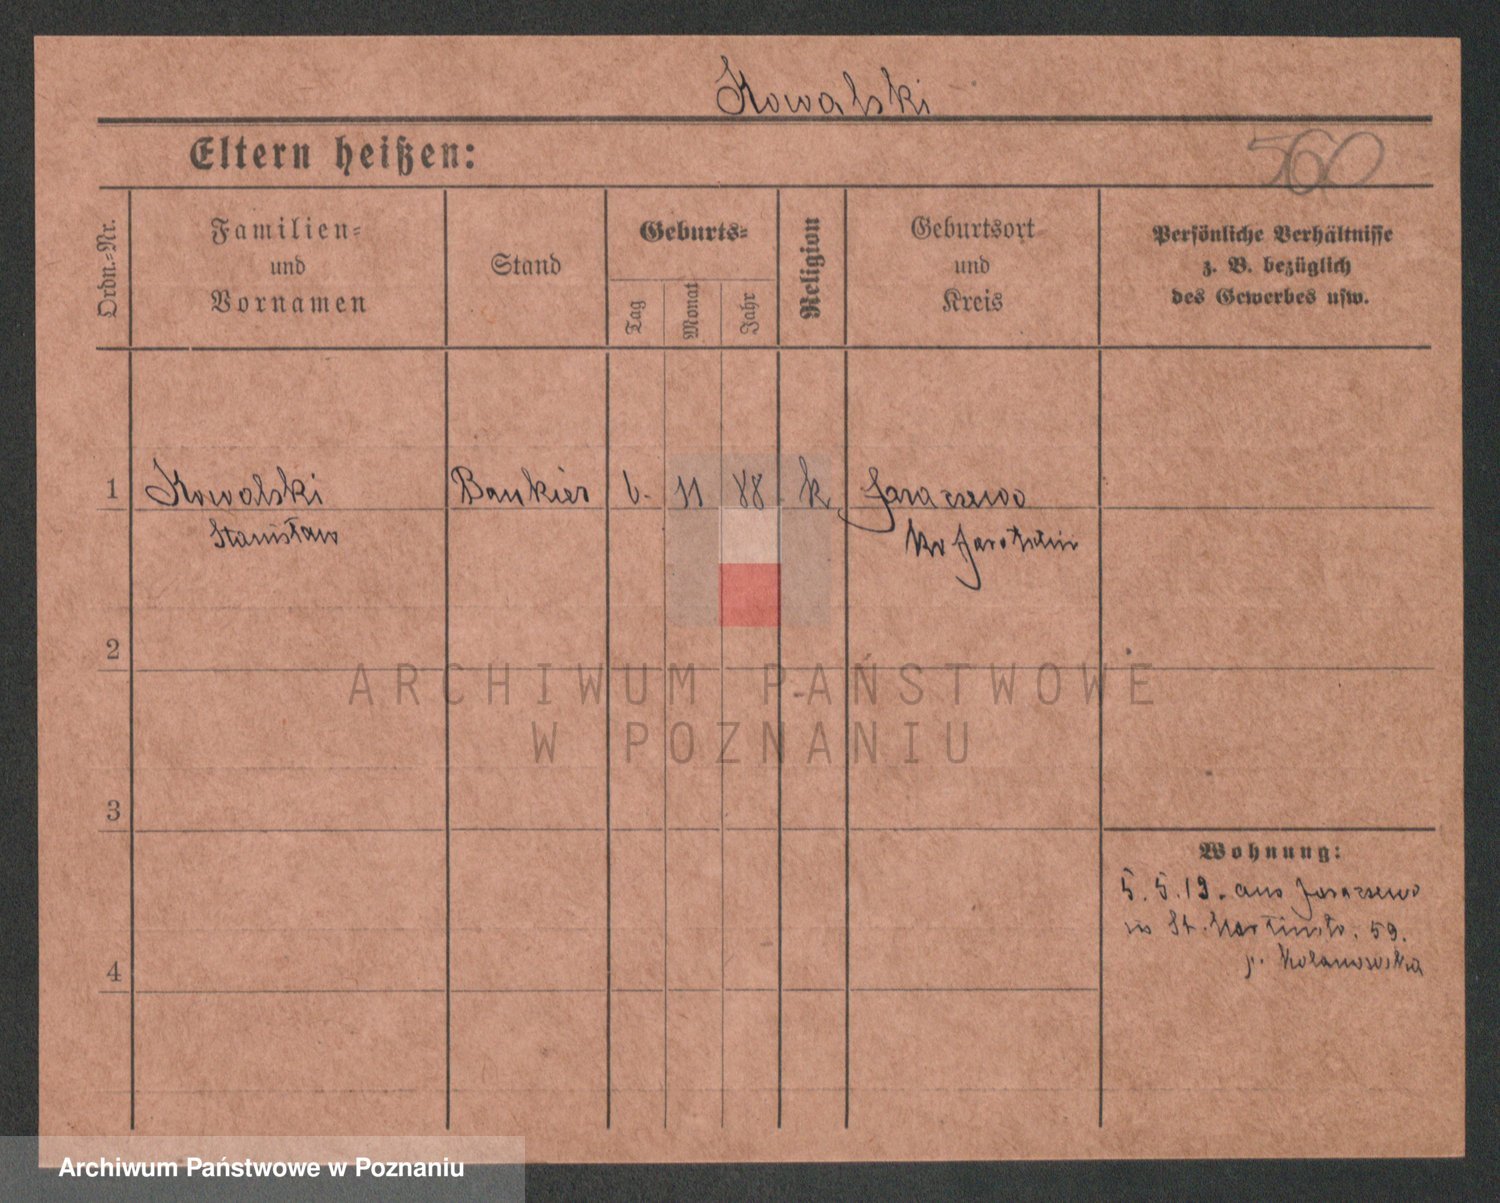 Kowalski
Eltern heißen:
560
Ordn.-Nr.
Familien-
und
Vornamen
Stand
Geburts-
Tag
Monat
Jahr
Religion
Geburtsort
und
Kreis
Persönliche Verhältnisse
z. B. bezüglich
des Gewerbes usw.
1 Kowalski Bankier 6. 11 88 k. Jaraczewo
Stanisław Kr Jarotschin
2
ARCHIWUM PAŃSTWOWE
W POZNANIU
3
Wohnung:
5. 5. 19. aus Jaraczewo
St. Martinstr. 59.
4
Archiwum Państwowe w Poznaniu